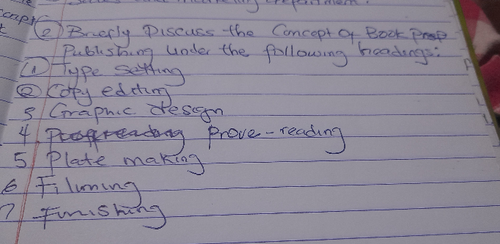 ② Briefly Discuss the Concept of Book
Publishing under the following headings:
① Type setting
② Copy editing
3 Graphic design
4. Prove-reading
5. Plate making
6 Filiming
7 Funishing